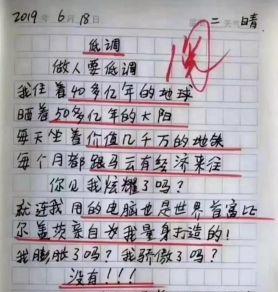 2019年6月18日 星期二 天气晴
低调
做人要低调
我住着40多亿年的地球
晒着50多亿年的太阳
每天坐着价值几千万的地铁
每个月都跟马云有经济来往
你见我炫耀了吗?
就连我用的电脑也是世界首富比
尔盖茨亲自为我量身打造的!
我膨胀了吗?我骄傲了吗?
没有!!!
阅